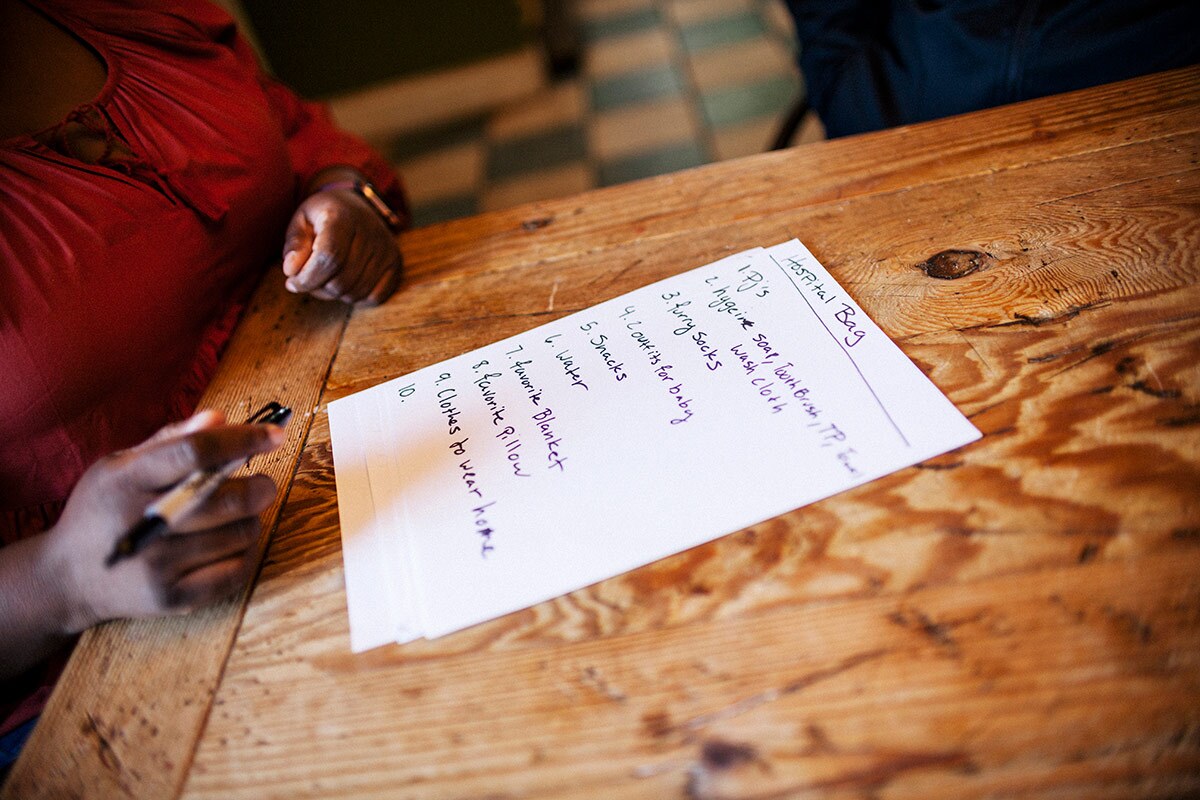 Hospital Bag
1. Pj's
2. hygeine soap, ToothBrush, TP, Towel
wash cloth
3. furry socks
4. 2 outfits for baby
5. Snacks
6. Water
7. favorite Blanket
8. favorite Pillow
9. Clothes to wear home
10.